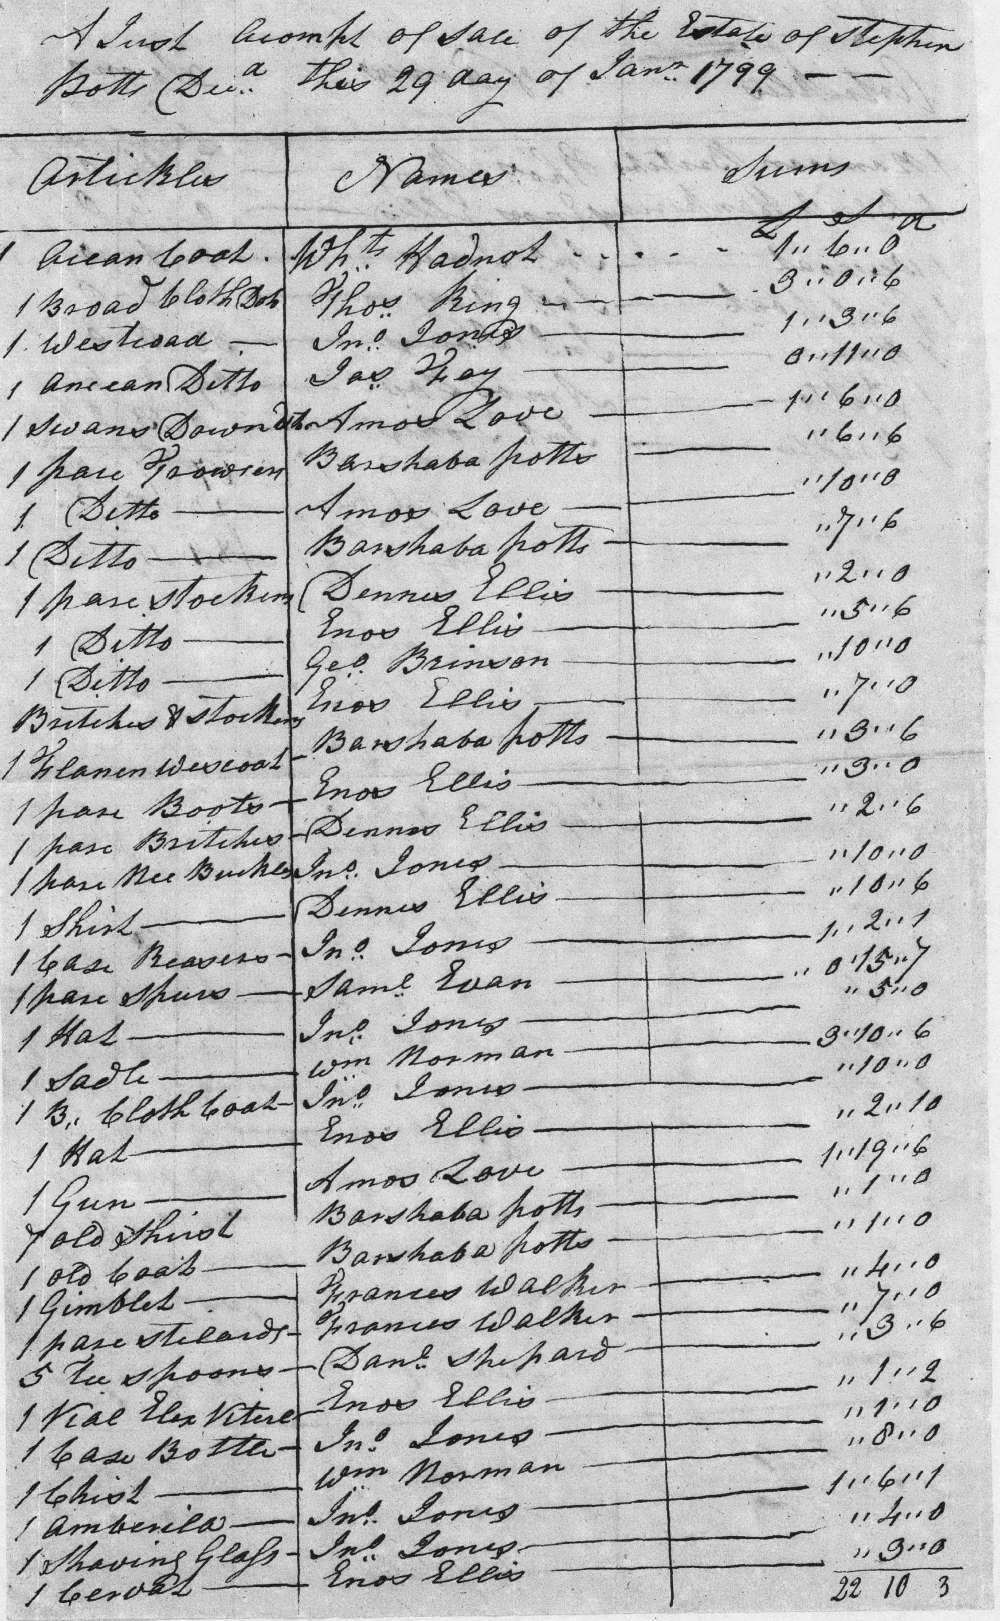 A Just Acompt of Sale of the Estate of Stephen
Potts Decd. this 29 day of Janr. 1799 — —
Artickles Names Sums
£ S d
1 Coat . Whts. Hadnot 1" 6" 0
1 Broad Cloth Do Thos. King 3" 0" 6
1 Westcoad — Jno. Jones 1" 3" 6
1 Ditto Jas Fay 0" 11" 0
1 Swans Down do Amos Love 1" 6" 0
1 pare Trowsers Barshaba potts "6" 6
1 Ditto Amos Love "10" 0
1 Ditto Barshaba potts "7" 6
1 pare stockens Dennes Ellis "2" 0
1 Ditto Enos Ellis "5" 6
1 Ditto Geo. Brinson "10" 0
Britches & stockens Enos Ellis "7" 0
1 Flanen wescoat Barshaba potts "3" 6
1 pare Boots Enos Ellis "3" 0
1 pare Britches Dennes Ellis "2" 6
1 pare Nee Buckles Jno. Jones "10" 0
1 Shirt Dennes Ellis "10" 6
1 Case Reasers Jno. Jones 1" 2" 1
1 pare spurs Saml. Evan "0" 15" 7
1 Hat Jno. Jones "5" 0
1 Sadle Wm Norman 3" 10" 6
1 B,, Cloth Coat Jno. Jones "10" 0
1 Hat Enos Ellis "2" 10
1 Gun Amos Love 1" 19" 6
7 old Shirst Barshaba potts "1" 0
1 old Coat Barshaba potts "1" 0
1 Gimblet Frances Walker "4" 0
1 pare stileards Frances Walker "7" 0
5 Tee spoons Danl. Shepard "3" 6
1 Vial Elex Vitrel Enos Ellis "1" 2
1 Case Bottle Jno. Jones "1" 0
1 Chist Wm Norman "8" 0
1 Amberila Jno. Jones 1" 6" 1
1 Shaving Glass Jno. Jones "4" 0
1 Cervat Enos Ellis "3" 0
22 10 3